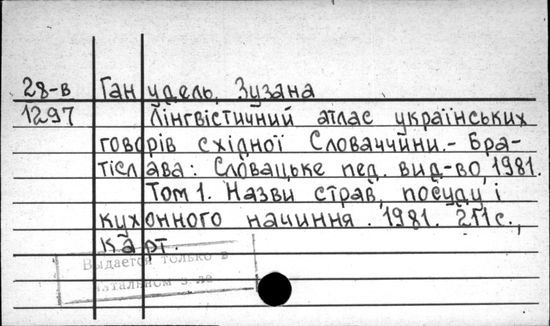 28-в Ганудель, Зузана
1297 Лінгвістичний атлас українських
говорів східної Словаччини.- Бра-
тіслава: Словацьке пед. вид-во, 1981.
Том 1. Назви страв, посуду і
кухонного начиння. 1981. 211 с.,
карт.
Выдается только в
читальном зале